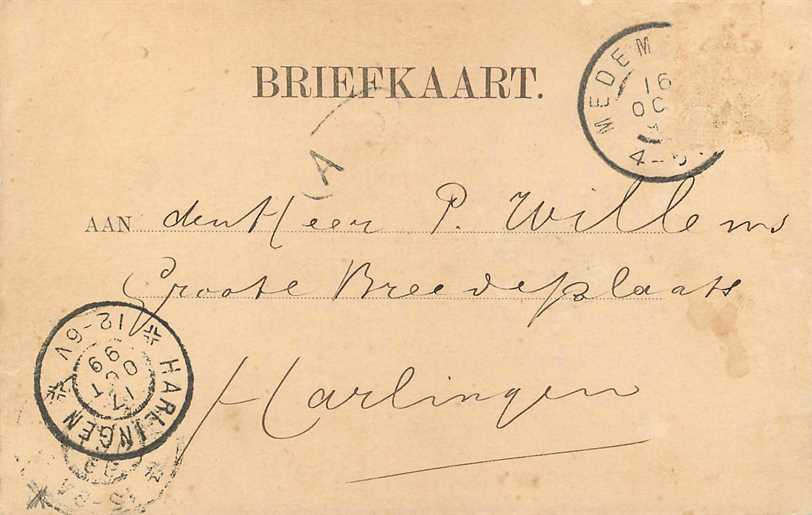 BRIEFKAART.
MEDEM
16
OC
4-5
A
AAN den Heer P. Willems
Groote Breedeplaats
Harlingen
HARLINGEN
12-6V
17
OCT
99